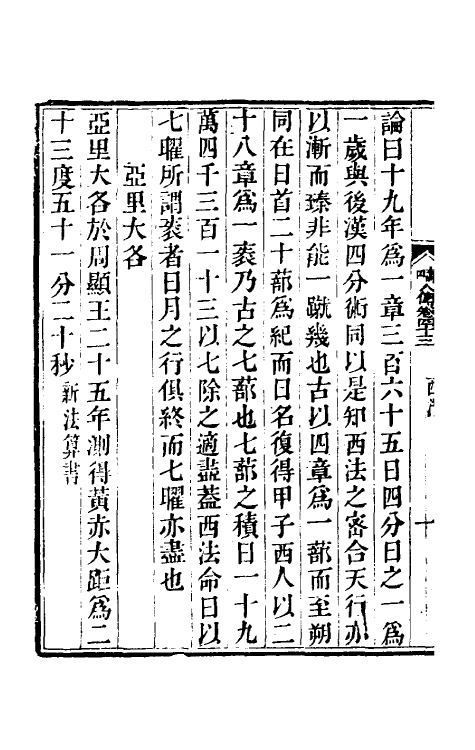 論曰十九年爲一章三百六十五日四分日之一爲
一歲與後漢四分術同以是知西法之密合天行亦
以漸而臻非能一蹴幾也古以四章爲一蔀而至朔
同在日首二十蔀爲紀而日名復得甲子西人以二
十八章爲一袠乃古之七蔀也七蔀之積日一十九
萬四千三百一十三以七除之適盡蓋西法命日以
七曜所謂袠者日月之行俱終而七曜亦盡也
亞里大各
亞里大各於周顯王二十五年測得黃赤大距爲二
十三度五十一分二十秒新法算書
疇人傳卷四十三